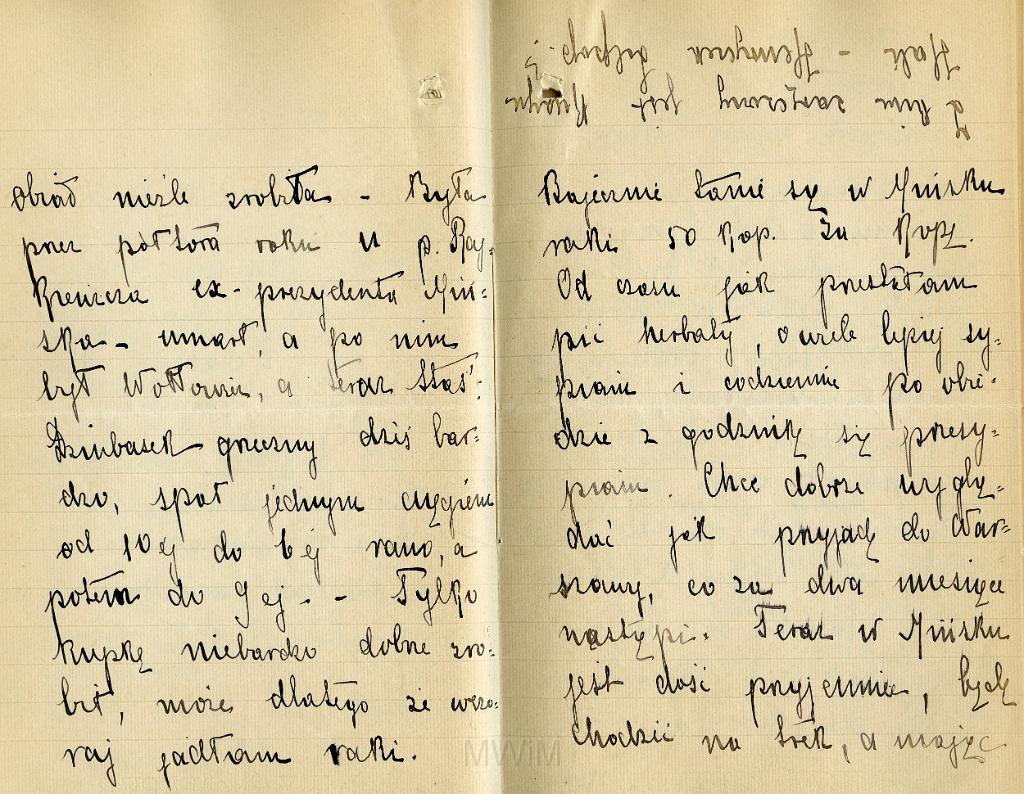 obiad nieźle zrobiła - Była
przez półtora roku u p. Raj-
Krenicza ex-prezydenta Miń-
ska - umarł, a po nim
był Wołłowicz, a teraz Staś.
Dziubasek grzeczny dziś bar-
dzo, spał jednym ciągiem
od 10ej do 6ej rano, a
potem do 9ej - - Tylko
kupkę niebardzo dobrze zro-
bił, może dlatego że wczo-
raj jadłam raki.
Z kim zaręczony jest
Hali - Henryczek
Bajecznie tanie są w Mińsku
raki 50 kop. za kopę.
Od czasu jak przestałam
pić herbatę, o wiele lepiej sy-
piam i codziennie po obie-
dzie z godzinkę się przesy-
piam. Chcę dobrze wyglą-
dać jak przyjadę do War-
szawy, co za dwa miesiące
nastąpi. Teraz w Mińsku
jest dość przyjemnie, będę
chodzić na trek, a mając
MWiM